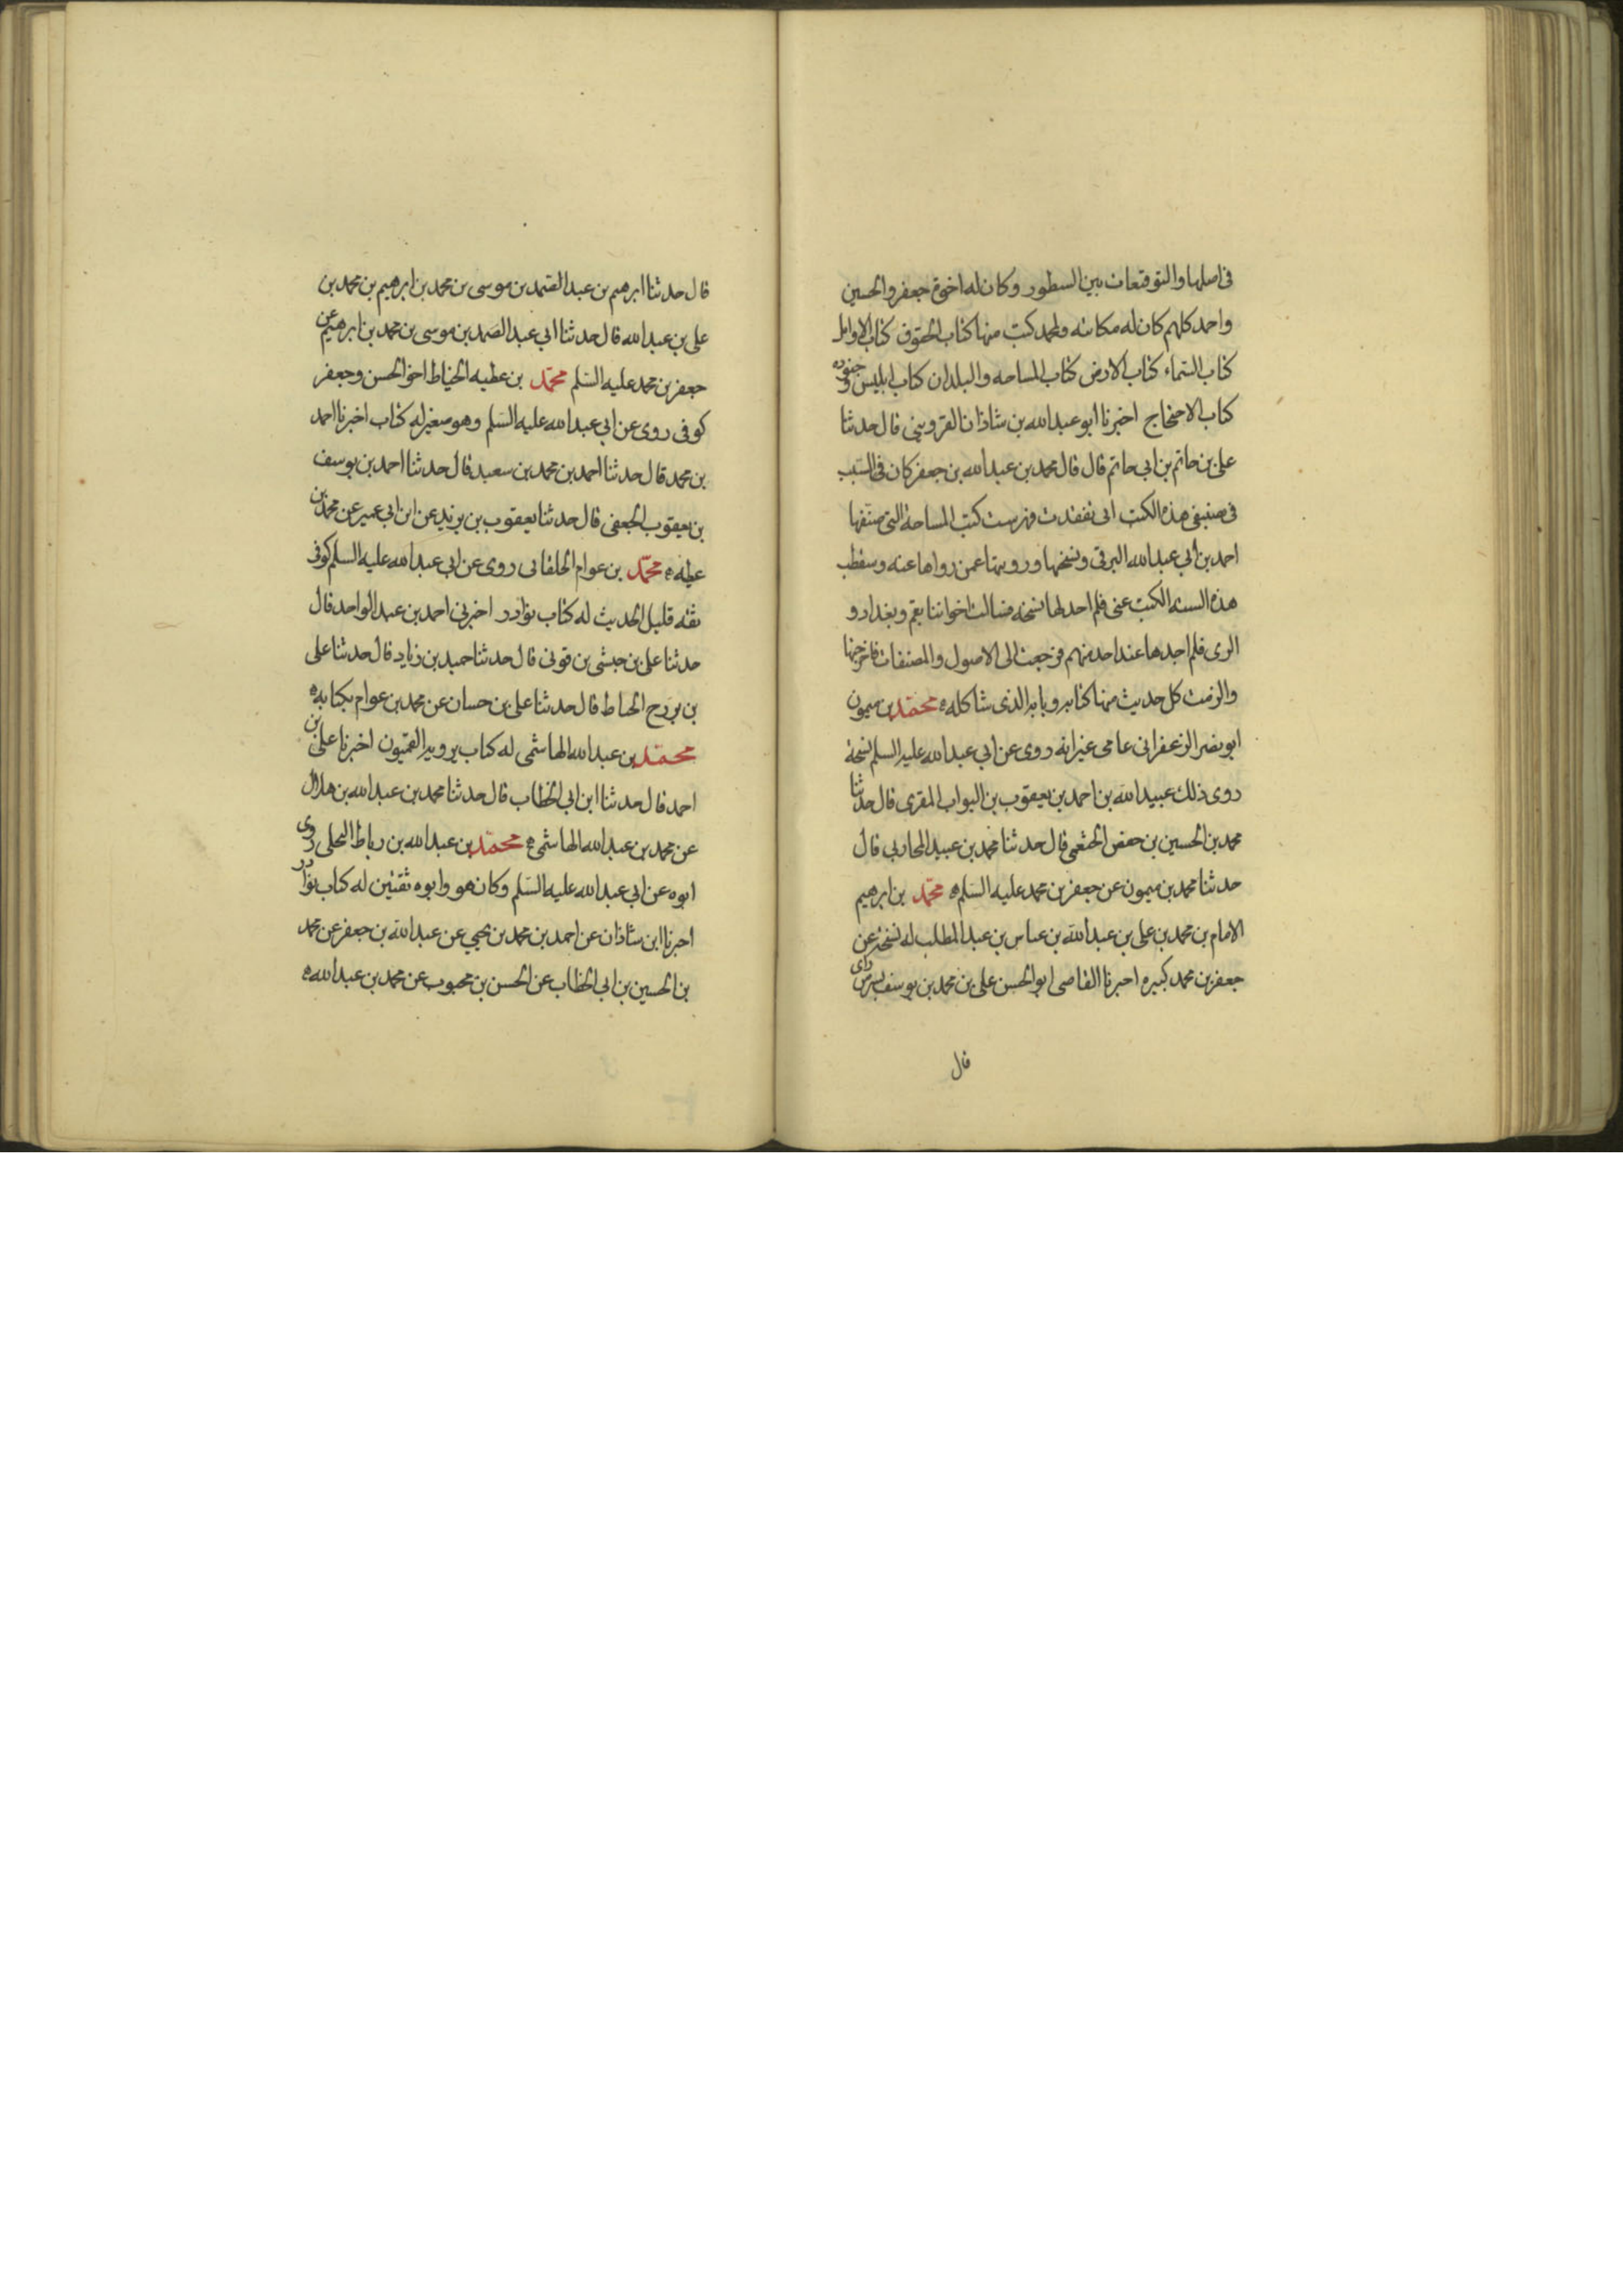 في اصلها والتوقيعات بين السطور وكان له اخوة جعفر والحسين
واحمد كلهم كان له مكاتبه ولمحمد كتب منها كتاب الحقوق كتاب الاوايل
كتاب السماء كتاب الارض كتاب المساحه والبلدان كتاب ابليس وجنوده
كتاب الاحتجاج اخبرنا ابو عبدالله بن شاذان القزويني قال حدثنا
علي بن حاتم بن ابي حاتم قال قال محمد بن عبدالله بن جعفر كان في السبب
في صنيفي هذه الكتب اني تفقدت فهرست كتب المساحة التي صنفها
احمد بن ابي عبدالله البرقي ونسختها ورويتها عمن رواها عنه وسقطت
هذه السته الكتب عني فلم اجد لها نسخه فسالت اخواننا بقم وبغداد و
الري فلم اجدها عند احد منهم فرجعت الى الاصول والمصنفات فاخرجتها
والزمت كل حديث منها كتابه وبابه الذي شاكله ه محمد بن ميمون
ابو نصر الزعفراني عامي غير انه روى عن ابي عبدالله عليه السلم نسخة
روى ذلك عبيدالله بن احمد بن يعقوب بن البواب المقرى قال حدثنا
محمد بن الحسين بن حفص الخثعمي قال حدثنا محمد بن عبيد المحاربي قال
حدثنا محمد بن ميمون عن جعفر بن محمد عليه السلم ه محمد بن ابرهيم
الامام بن محمد بن علي بن عبدالله بن عباس بن عبد المطلب له نسخة عن
جعفر بن محمد كبيره اخبرنا القاضي ابو الحسن علي بن محمد بن يوسف بسر من راى
قال
قال حدثنا ابرهيم بن عبد الصمد بن موسى بن محمد بن ابرهيم بن محمد بن
علي بن عبدالله قال حدثنا ابي عبد الصمد بن موسى بن محمد بن ابرهيم عن
جعفر بن محمد عليه السلم محمد بن عطيه الحناط اخو الحسن وجعفر
كوفي روى عن ابي عبدالله عليه السلم وهو صغير له كتاب اخبرنا احمد
بن محمد قال حدثنا احمد بن محمد بن سعيد قال حدثنا احمد بن يوسف
بن يعقوب الجعفي قال حدثنا يعقوب بن يزيد عن ابن ابي عمير عن محمد بن
عطيه ه محمد بن عوام الخلقاني روى عن ابي عبدالله عليه السلم كوفي
ثقه قليل الحديث له كتاب نوادر اخبرني احمد بن عبد الواحد قال
حدثنا علي بن حبشي بن قوني قال حدثنا حميد بن زياد قال حدثنا علي
بن بزرج الحناط قال حدثنا علي بن حسان عن محمد بن عوام بكتابه ه
محمد بن عبدالله الهاشمي له كتاب يرويه القميون اخبرنا علي بن
احمد قال حدثنا ابن ابي الخطاب قال حدثنا محمد بن عبدالله بن هلال
عن محمد بن عبدالله الهاشمي ه محمد بن عبدالله بن رباط البجلي روى
ابوه عن ابي عبدالله عليه السلم وكان هو وابوه ثقتين له كتاب نوادر
اخبرنا ابن شاذان عن احمد بن محمد بن يحيي عن عبدالله بن جعفر عن محمد
بن الحسين بن ابي الخطاب عن الحسن بن محبوب عن محمد بن عبدالله ه